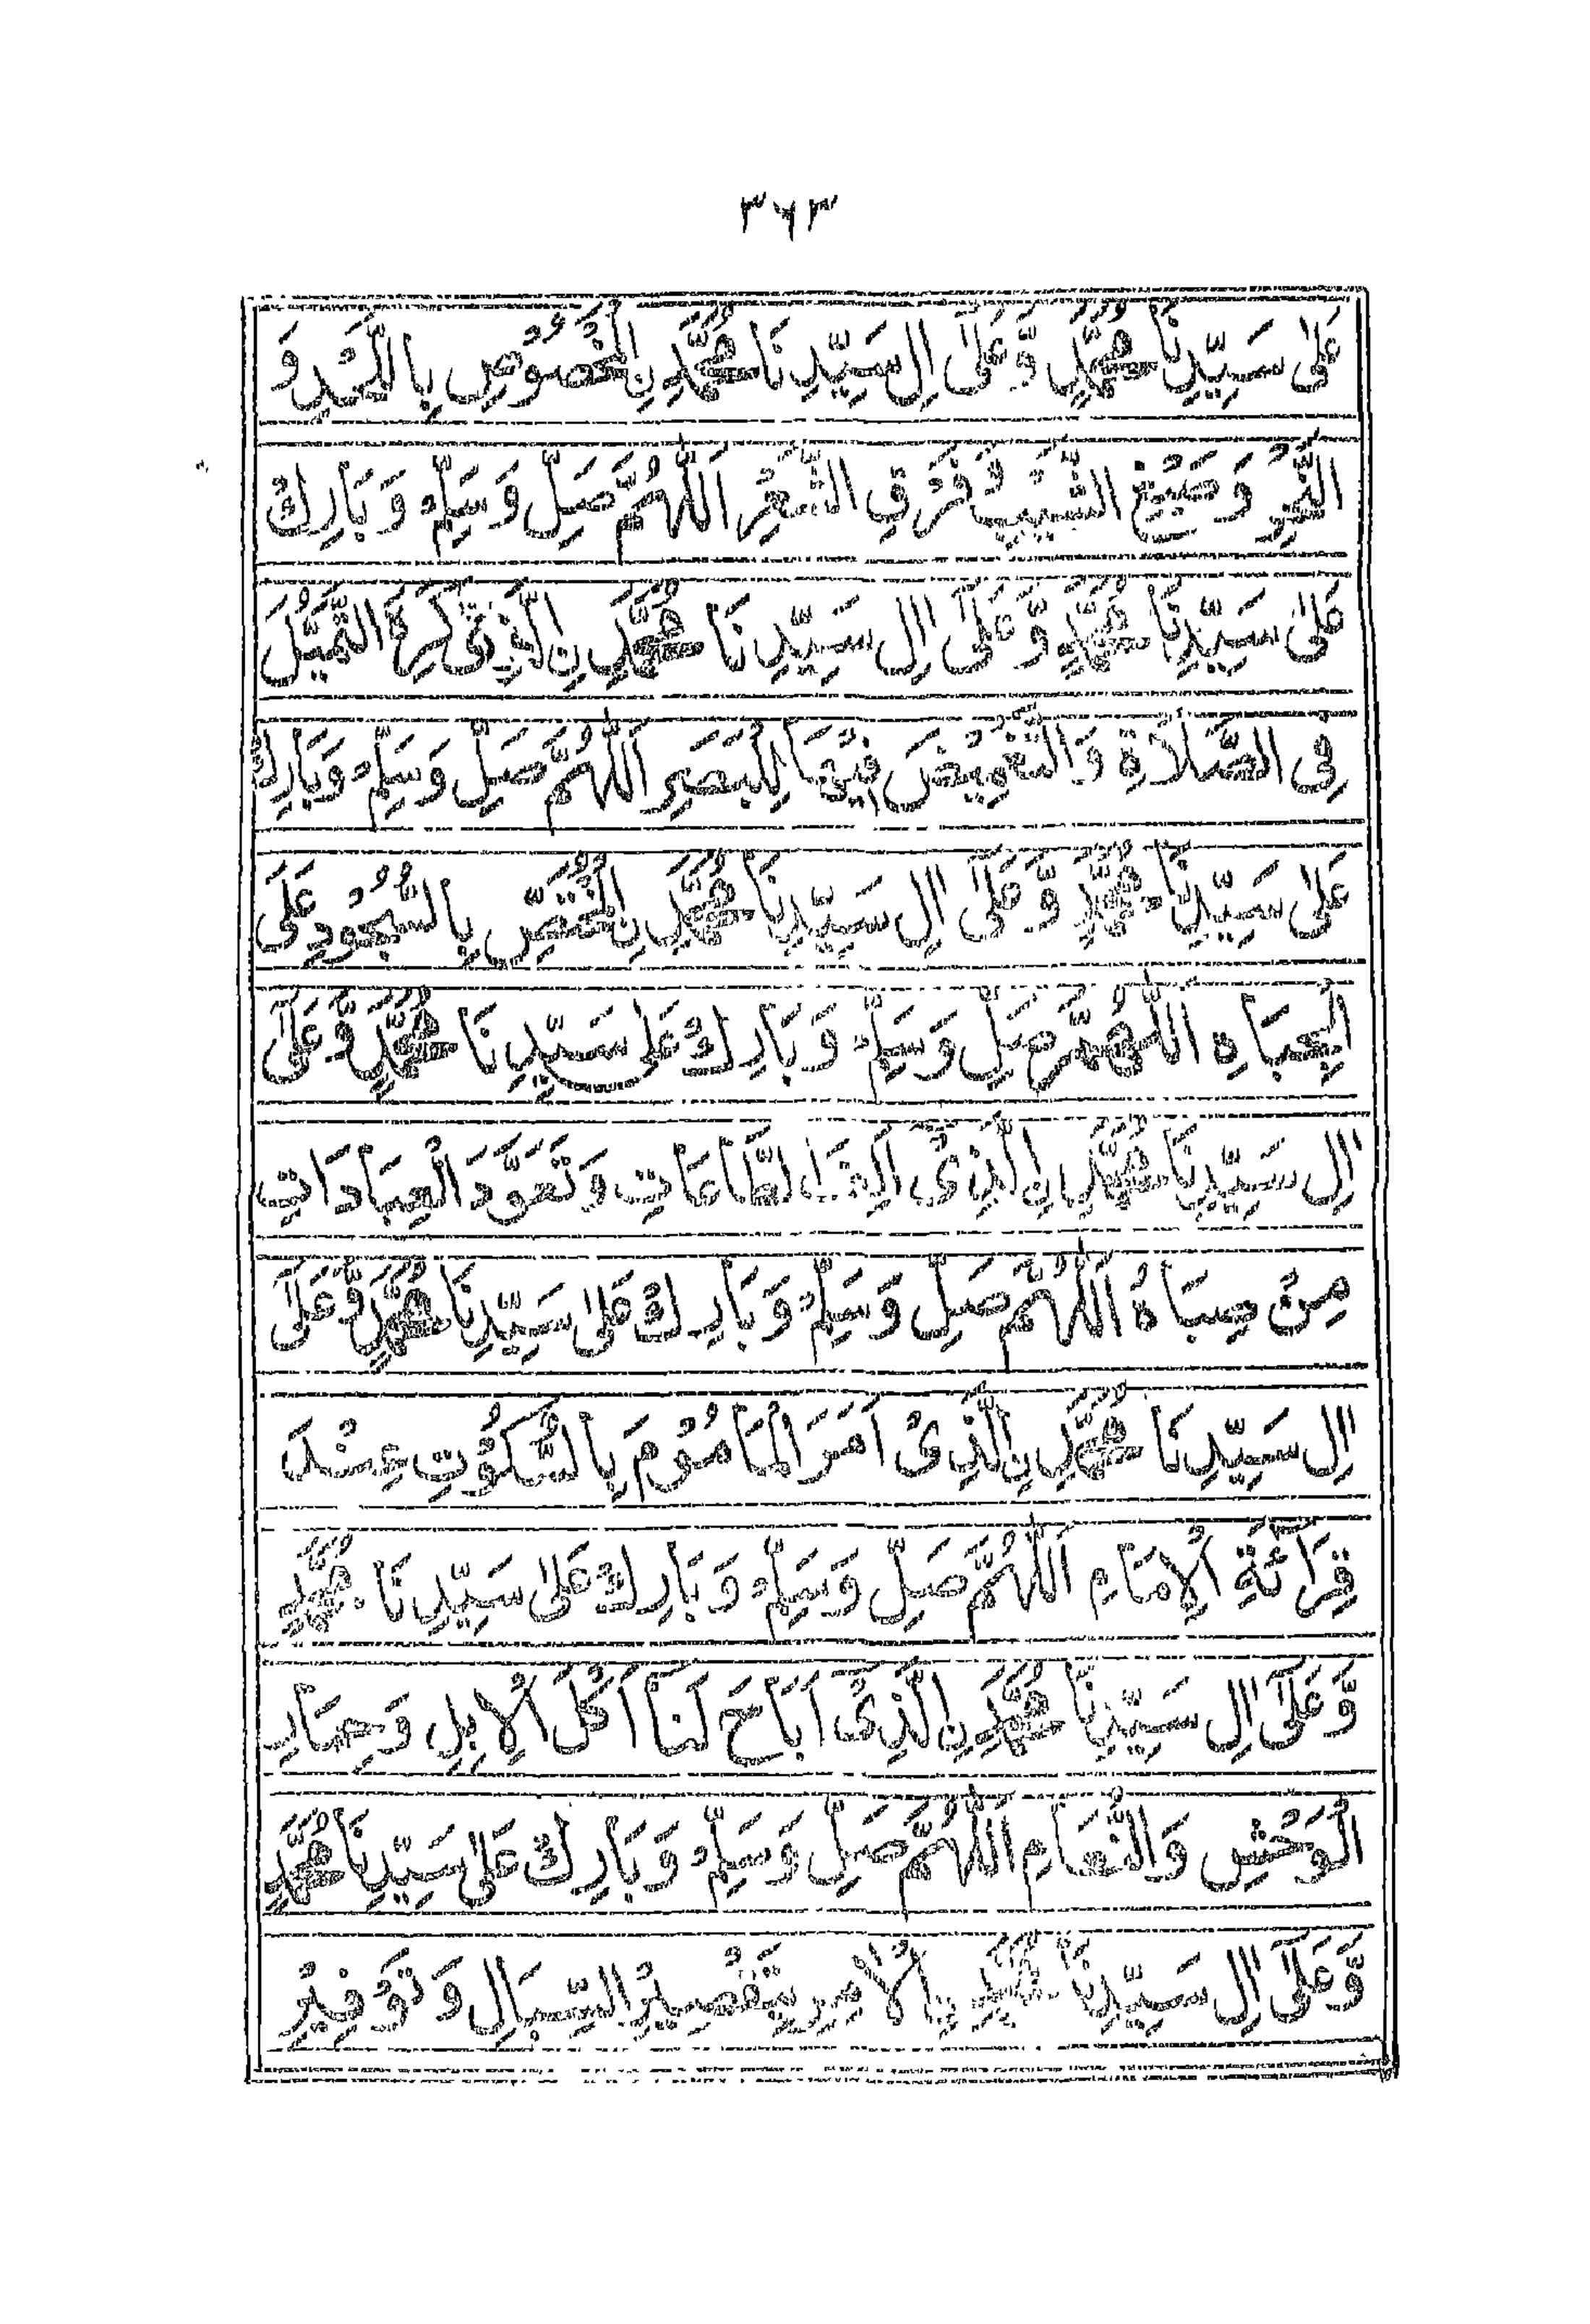 ۳۶۳
عَلٰى سَيِّدِنَا مُحَمَّدٍ وَّعَلٰٓى اٰلِ سَيِّدِنَا مُحَمَّدِنِ الْمَخْصُوْصِ بِاللَّبَدِ وَ
وَصَبْغِ الشَّيْبِ وَفَرْقِ الشَّعْرِ اَللّٰهُمَّ صَلِّ وَسَلِّمْ وَبَارِكْ
عَلٰى سَيِّدِنَا مُحَمَّدٍ وَّعَلٰٓى اٰلِ سَيِّدِنَا مُحَمَّدِنِ الَّذِىْ كَرِهَ التَّمَيُّلَ
فِى الصَّلَاةِ وَالتَّغْمِيْضَ فِيْهَا لِلْبَصَرِ اَللّٰهُمَّ صَلِّ وَسَلِّمْ وَبَارِكْ
عَلٰى سَيِّدِنَا مُحَمَّدٍ وَّعَلٰٓى اٰلِ سَيِّدِنَا مُحَمَّدِنِ الْمُخْتَصِّ بِالسُّجُوْدِ عَلَى
الْجِبَاهِ اَللّٰهُمَّ صَلِّ وَسَلِّمْ وَبَارِكْ عَلٰى سَيِّدِنَا مُحَمَّدٍ وَّعَلٰٓى
اٰلِ سَيِّدِنَا مُحَمَّدِنِ الَّذِىْ اَلِفَ الطَّاعَاتِ وَتَعَوَّدَ الْعِبَادَاتِ
مِنْ صِبَاهُ اَللّٰهُمَّ صَلِّ وَسَلِّمْ وَبَارِكْ عَلٰى سَيِّدِنَا مُحَمَّدٍ وَّعَلٰٓى
اٰلِ سَيِّدِنَا مُحَمَّدِنِ الَّذِىْ اَمَرَ الْمَامُوْمَ بِالسُّكُوْتِ عِنْدَ
قِرَاۤئَةِ الْاِمَامِ اَللّٰهُمَّ صَلِّ وَسَلِّمْ وَبَارِكْ عَلٰى سَيِّدِنَا مُحَمَّدٍ
وَّعَلٰٓى اٰلِ سَيِّدِنَا مُحَمَّدِنِ الَّذِىْ اَبَاحَ لَنَا اَكْلَ الْاِبِلِ وَحِمَارِ
الْوَحْشِ وَالنَّعَامِ اَللّٰهُمَّ صَلِّ وَسَلِّمْ وَبَارِكْ عَلٰى سَيِّدِنَا مُحَمَّدٍ
وَّعَلٰٓى اٰلِ سَيِّدِنَا مُحَمَّدِ الْاٰمِرِ بِتَقْصِيْرِ السِّبَالِ وَتَوْفِيْرِ